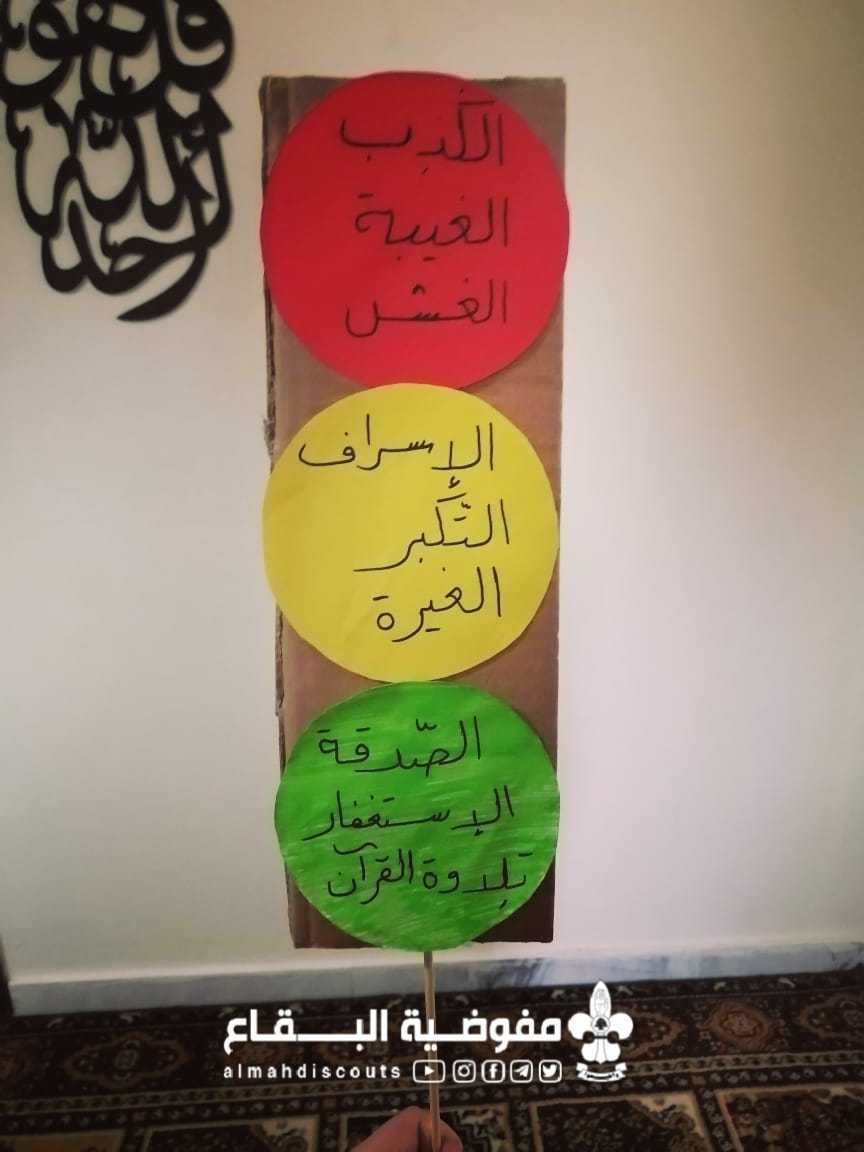 قل هو
الله
أحد
الكذب
الغيبة
الغش
الإسراف
التَّكبر
الغيرة
الصّدقة
الإستغفار
تلاوة القرآن
مفوضية البقاع
almahdiscouts